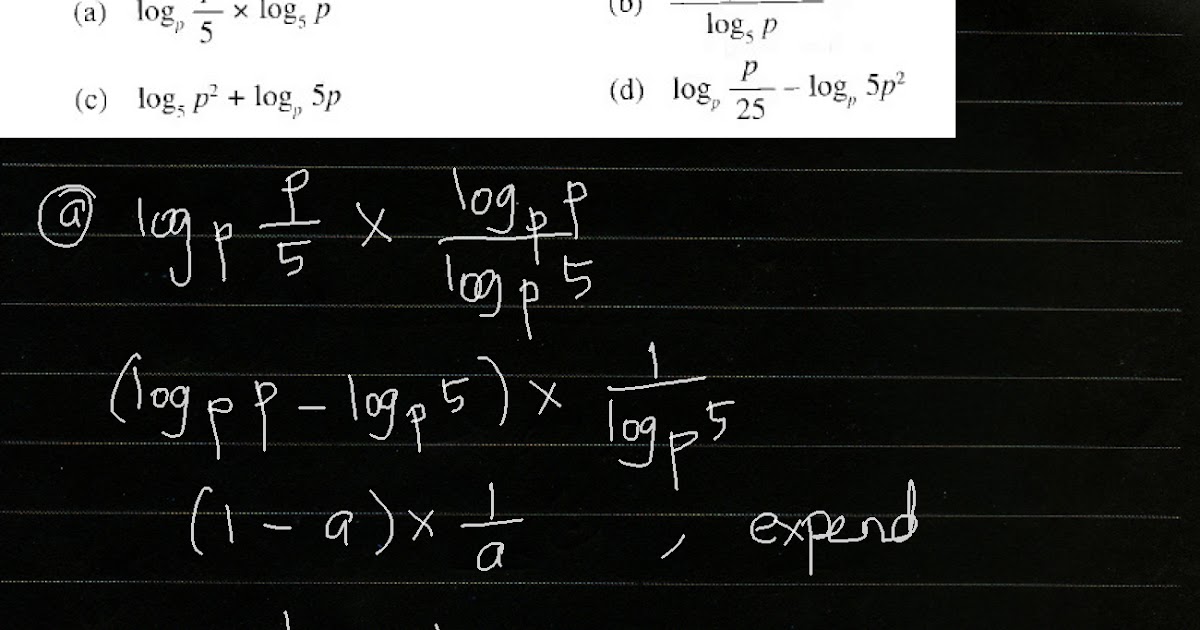 (a) log_p p/5 × log_5 p
(b) log_5 p
(c) log_5 p² + log_p 5p
(d) log_p p/25 − log_p 5p²
(a) log_p p/5 × log_p p / log_p 5
(log_p p − log_p 5) × 1 / log_p 5
(1 − a) × 1/a , expend